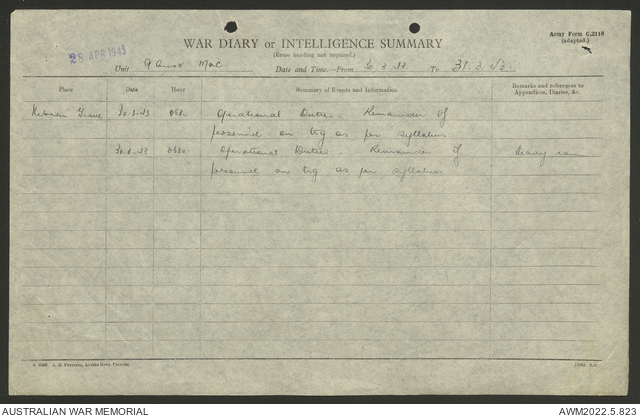 Army Form C.2118
(adapted.)
WAR DIARY or INTELLIGENCE SUMMARY
(Erase heading not required.)
28 APR 1943
Unit Mac
Date and Time—From To 31.3.43.
Place Date Hour Summary of Events and Information Remarks and references to
Appendices, Diaries, &c.
30.3.43 Operational Duties. Remainder of
personnel on trg as per syllabus
Operational Duties Remainder of Heavy rain
personnel on trg as per syllabus
AUSTRALIAN WAR MEMORIAL AWM2022.5.823